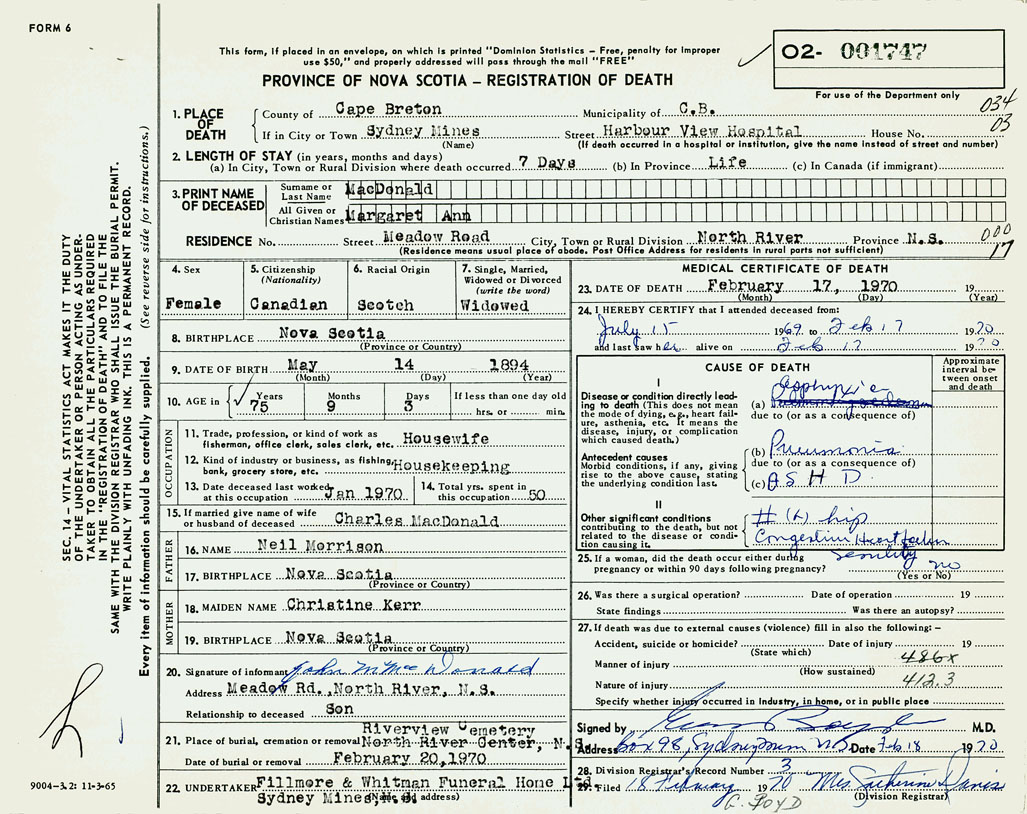 FORM 6
This form, if placed in an envelope, on which is printed "Dominion Statistics – Free, penalty for improper
use $50," and properly addressed will pass through the mail "FREE"
PROVINCE OF NOVA SCOTIA – REGISTRATION OF DEATH
02- 001747
For use of the Department only
034
03
1. PLACE OF DEATH
County of Cape Breton Municipality of C.B.
If in City or Town Sydney Mines Street Harbour View Hospital House No.
(Name) (If death occurred in a hospital or institution, give the name instead of street and number)
2. LENGTH OF STAY (in years, months and days)
(a) In City, Town or Rural Division where death occurred 7 Days (b) In Province Life (c) In Canada (if immigrant)
3. PRINT NAME OF DECEASED
Surname or Last Name MacDonald
All Given or Christian Names Margaret Ann
RESIDENCE No. Street Meadow Road City, Town or Rural Division North River Province N.S.
(Residence means usual place of abode. Post Office Address for residents in rural parts not sufficient)
000
17
4. Sex
Female
5. Citizenship
(Nationality)
Canadian
6. Racial Origin
Scotch
7. Single, Married,
Widowed or Divorced
(write the word)
Widowed
8. BIRTHPLACE Nova Scotia
(Province or Country)
9. DATE OF BIRTH May 14 1894
(Month) (Day) (Year)
10. AGE in Years Months Days If less than one day old
75 9 3 hrs. or min.
OCCUPATION
11. Trade, profession, or kind of work as
fisherman, office clerk, sales clerk, etc. Housewife
12. Kind of industry or business, as fishing,
bank, grocery store, etc. Housekeeping
13. Date deceased last worked
at this occupation Jan 1970
14. Total yrs. spent in
this occupation 50
15. If married give name of wife
or husband of deceased Charles MacDonald
FATHER
16. NAME Neil Morrison
17. BIRTHPLACE Nova Scotia
(Province or Country)
MOTHER
18. MAIDEN NAME Christine Kerr
19. BIRTHPLACE Nova Scotia
(Province or Country)
20. Signature of informant John M MacDonald
Address Meadow Rd., North River, N.S.
Relationship to deceased Son
21. Place of burial, cremation or removal Riverview Cemetery
North River Center, N.S.
Date of burial or removal February 20,1970
22. UNDERTAKER Fillmore & Whitman Funeral Home Ltd.
Sydney Mines N.S.
(Name and address)
MEDICAL CERTIFICATE OF DEATH
23. DATE OF DEATH February 17, 1970 19
(Month) (Day) (Year)
24. I HEREBY CERTIFY that I attended deceased from:
July 15 1969 to Feb 17 1970
and last saw her alive on Feb 17 1970
CAUSE OF DEATH
Approximate
interval be-
tween onset
and death
I
Disease or condition directly lead-
ing to death (This does not mean
the mode of dying, e.g., heart fail-
ure, asthenia, etc. It means the
disease, injury, or complication
which caused death.)
Asphyxia
(a)
due to (or as a consequence of)
Antecedent causes
Morbid conditions, if any, giving
rise to the above cause, stating
the underlying condition last.
(b) Pneumonia
due to (or as a consequence of)
(c) A S H D
II
Other significant conditions
contributing to the death, but not
related to the disease or condi-
tion causing it.
# (L) hip
Congestive Heart Failure
Senility
25. If a woman, did the death occur either during
pregnancy or within 90 days following pregnancy? no
(Yes or No)
26. Was there a surgical operation? Date of operation 19
State findings Was there an autopsy?
27. If death was due to external causes (violence) fill in also the following:–
Accident, suicide or homicide? Date of injury 19
(State which)
Manner of injury 486x
(How sustained)
Nature of injury 412.3
Specify whether injury occurred in Industry, in home, or in public place
Signed by M.D.
Address Box 98, Sydney Mines N.S. Date Feb 18 1970
28. Division Registrar's Record Number 3
29. Filed 18 February 1970 Mrs. Catherine Davis
(Division Registrar)
G. BOYD
SEC. 14 – VITAL STATISTICS ACT MAKES IT THE DUTY
OF THE UNDERTAKER OR PERSON ACTING AS UNDER-
TAKER TO OBTAIN ALL THE PARTICULARS REQUIRED
IN THE "REGISTRATION OF DEATH" AND TO FILE THE
SAME WITH THE DIVISION REGISTRAR WHO SHALL ISSUE THE BURIAL PERMIT.
WRITE PLAINLY WITH UNFADING INK. THIS IS A PERMANENT RECORD.
Every item of information should be carefully supplied. (See reverse side for instructions.)
9004–3.2: 11-3-65